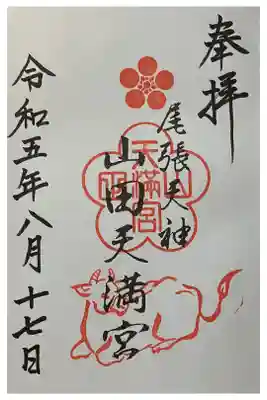 奉拝
尾張天神
山田天満宮
天満宮
山田
令和五年八月十七日